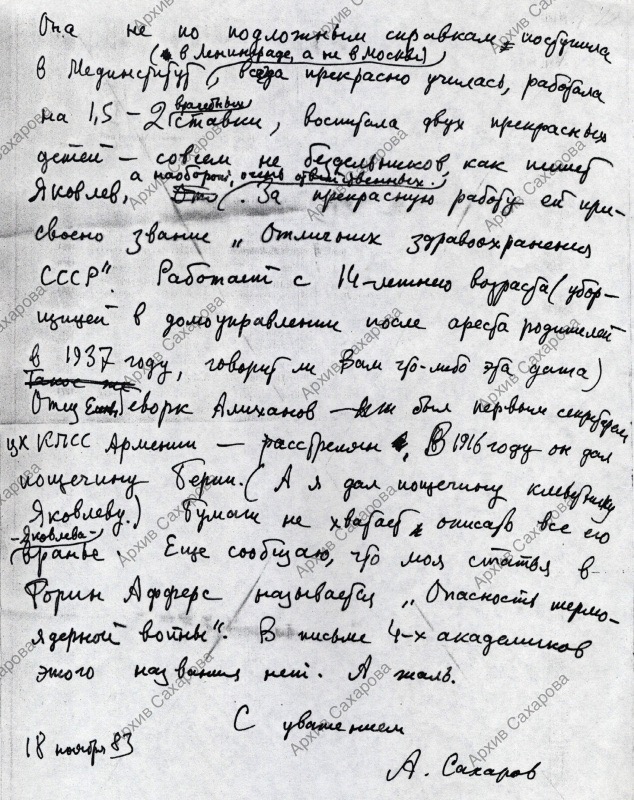 Она не по подложным справкам поступила
(в Ленинграде, а не в Москве)
в Мединститут, всегда прекрасно училась, работала
врачебных
на 1,5 – 2 ставки, воспитала двух прекрасных
детей – совсем не бездельников, как пишет
а наоборот, очень ответственных.
Яковлев, Это. За прекрасную работу ей при-
своено звание „Отличник здравоохранения
СССР". Работает с 14-летнего возраста (убор-
щицей в домоуправлении после ареста родителей
в 1937 году, говорит ли Вам что-либо эта дата)
Такое же
Отец Геворк Алиханов – был первым секретарем
ЦК КПСС Армении – расстрелян, В 1916 году он дал
пощечину Берии. (А я дал пощечину клеветнику
Яковлеву.) Бумаги не хватает описать все его
– Яковлева –
вранье. Еще сообщаю, что моя статья в
Форин Афферс называется „Опасность термо-
ядерной войны". В письме 4-х академиков
этого названия нет. А жаль.
С уважением
18 ноября 83
А. Сахаров
Архив Сахарова